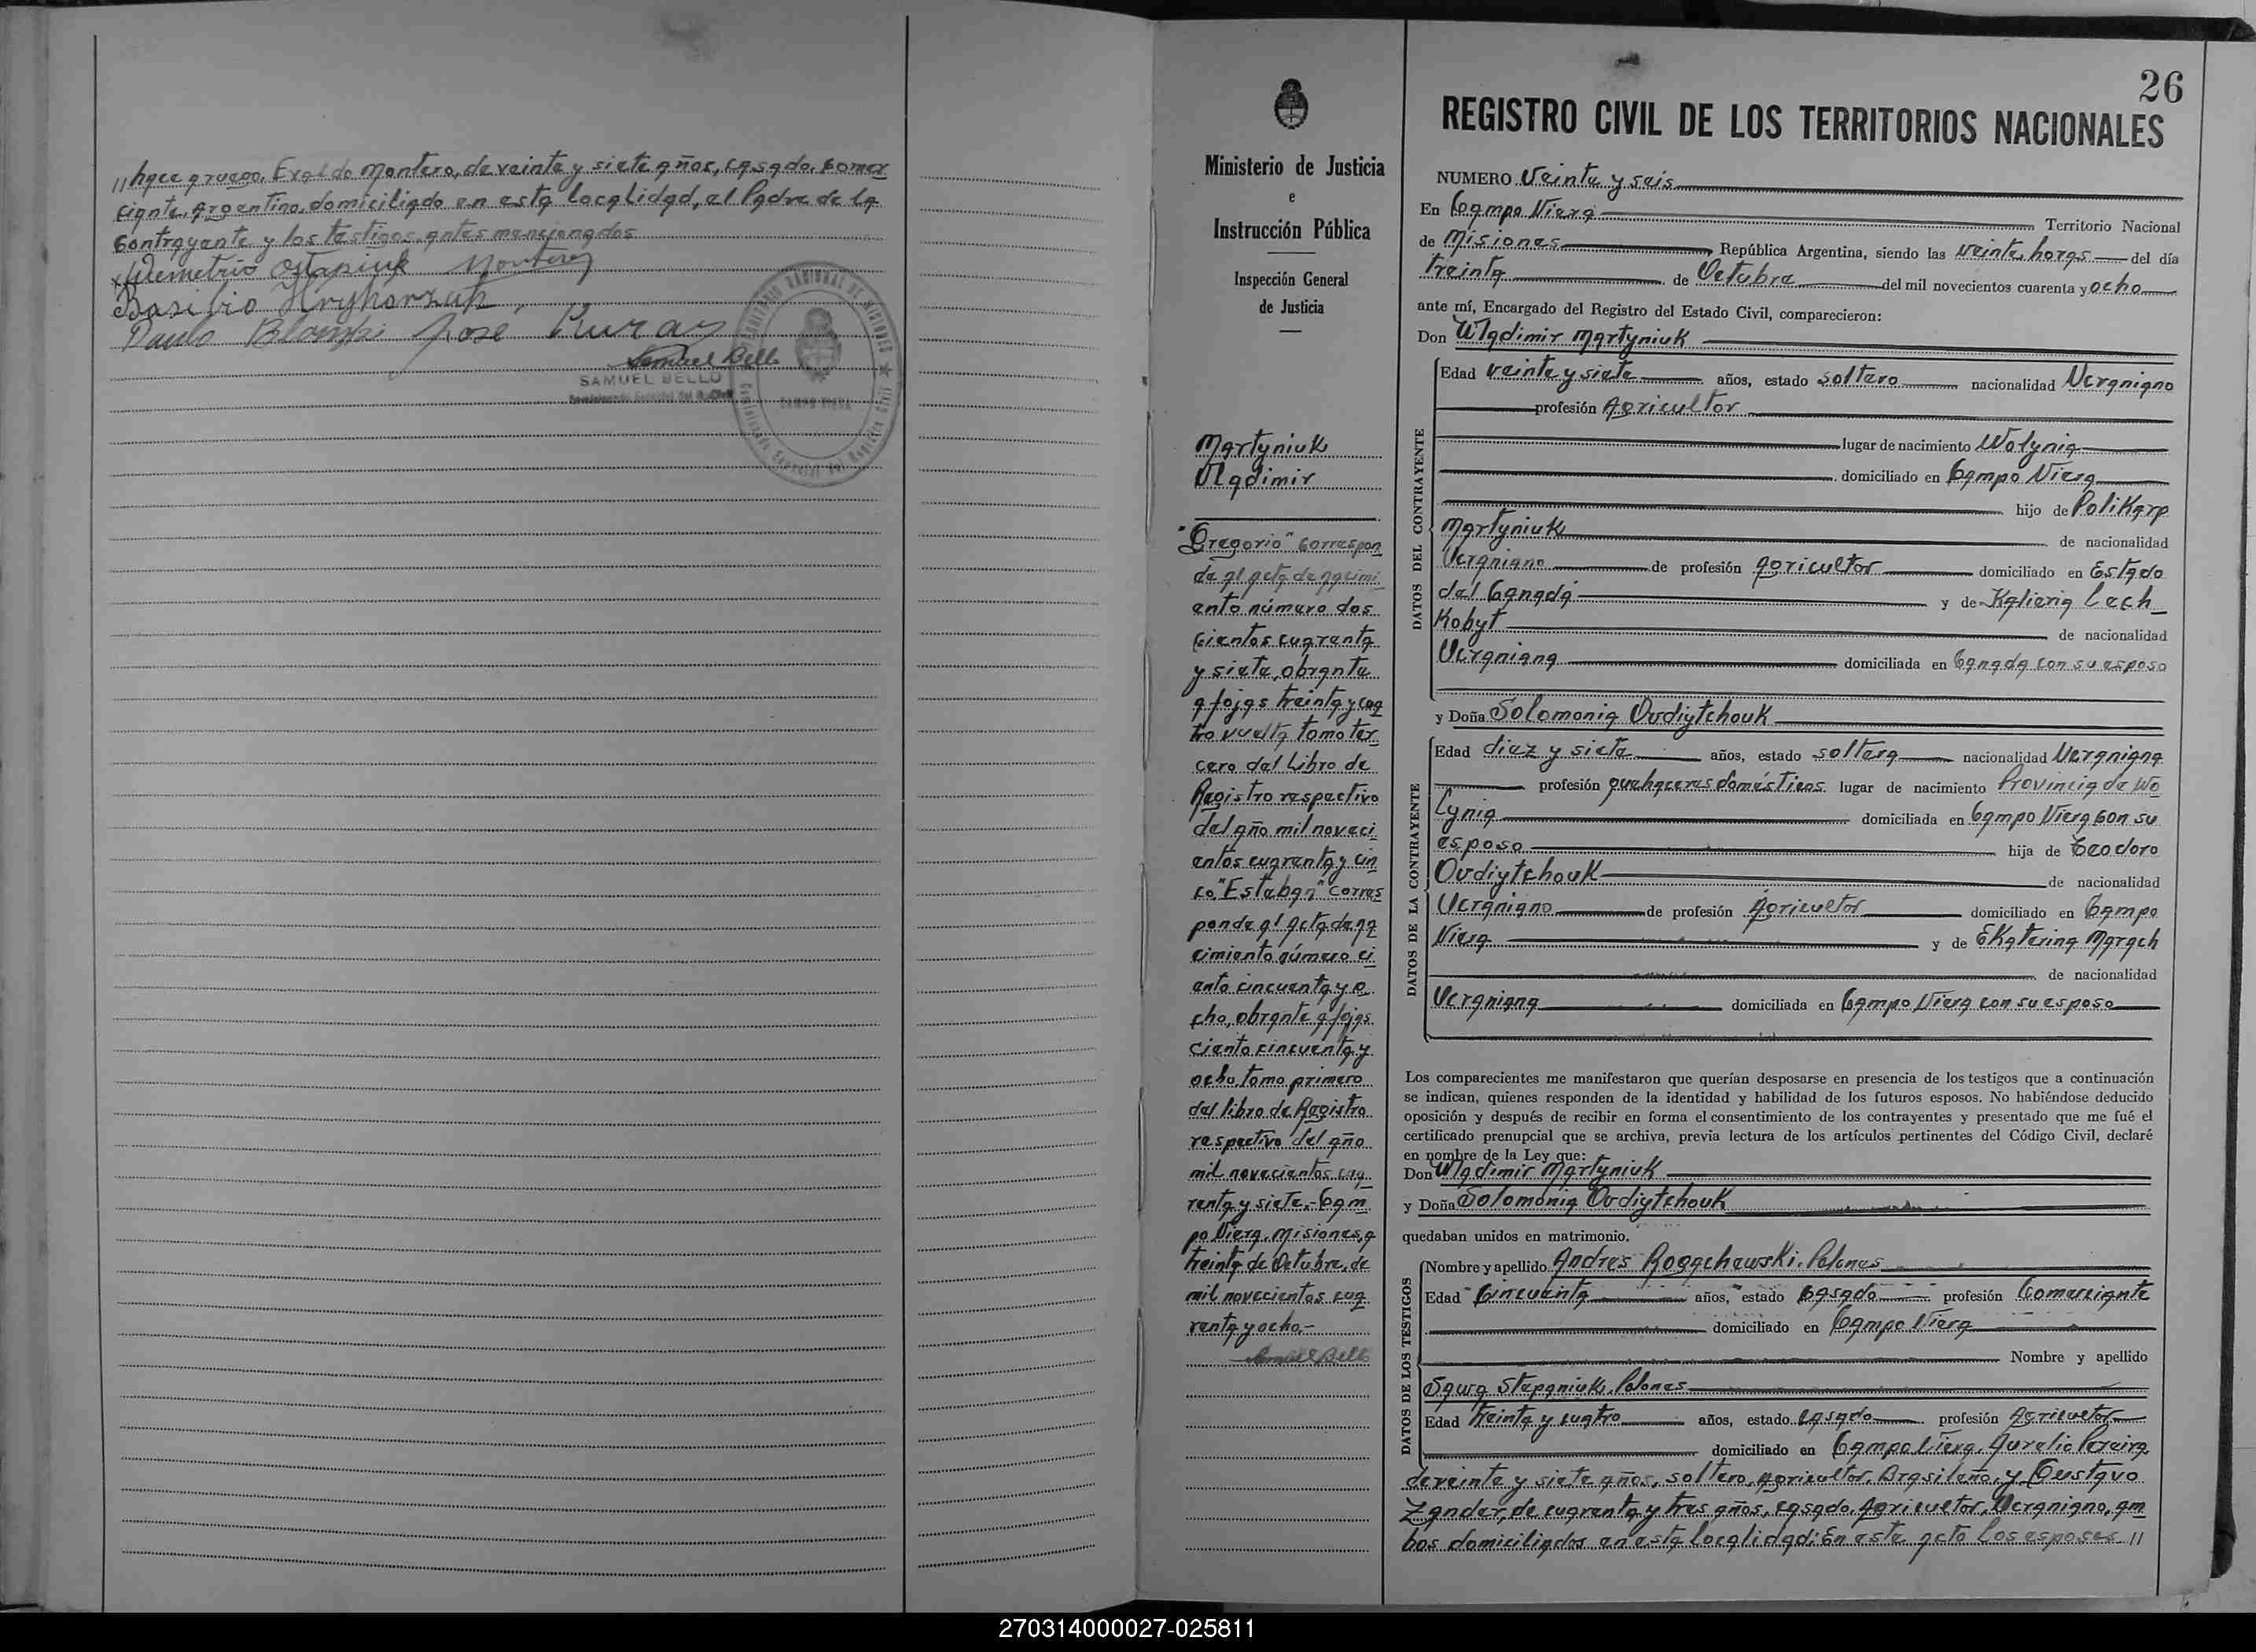 // hace a ruego, Exaldo Montero, de veinte y siete años, casado, Comer
ciante, Argentino, domiciliado en esta localidad, el Padre de la
Contrayente y los testigos antes mencionados
Demetrio Ostapiuk Montero
Basilio Hryhorzuk
Paulo José
Samuel Bello
SAMUEL BELLO
CAMPO VIERA
26
Ministerio de Justicia
e
Instrucción Pública
Inspección General
de Justicia
Martyniuk
Vladimir
"Gregorio" Correspon
de al acta de nacimi
ento número dos
cientos cuarenta
y siete, obrante
a fojas treinta y cua
tro vuelta, tomo ter
cero del Libro de
Registro respectivo
del año mil noveci
entos cuarenta y cin
co. "Esteban" Corres
ponde al acta de na
cimiento número ci
ento cincuenta y o
cho, obrante a fojas
ciento cincuenta y
ocho, tomo primero
del libro de Registro
respectivo del año
mil novecientos cua
renta y siete.- Cam
po Viera, Misiones, a
treinta de Octubre, de
mil novecientos cua
renta y ocho.-
Samuel Bello
REGISTRO CIVIL DE LOS TERRITORIOS NACIONALES
NUMERO Veinte y seis
En Campo Viera Territorio Nacional
de Misiones República Argentina, siendo las veinte horas del día
treinta de Octubre del mil novecientos cuarenta y ocho
ante mí, Encargado del Registro del Estado Civil, comparecieron:
Don Wladimir Martyniuk
DATOS DEL CONTRAYENTE
Edad veinte y siete años, estado soltero nacionalidad Ucraniano
profesión Agricultor
lugar de nacimiento Wolynia
domiciliado en Campo Viera
hijo de Polikarp
Martyniuk de nacionalidad
Ucraniano de profesión agricultor domiciliado en Estado
del Canadá y de Kalieria Cech
Kobyt de nacionalidad
Ucraniana domiciliada en Canada con su esposo
y Doña Solomonia Ovdiytchouk
DATOS DE LA CONTRAYENTE
Edad diez y siete años, estado soltera nacionalidad Ucraniana
profesión quehaceres domésticos lugar de nacimiento Provincia de Wo
lynia domiciliada en Campo Viera con su
esposo hija de Teodoro
Ovdiytchouk de nacionalidad
Ucraniano de profesión Agricultor domiciliado en Campo
Viera y de Ekaterina Marach
de nacionalidad
Ucraniana domiciliada en Campo Viera con su esposo
Los comparecientes me manifestaron que querían desposarse en presencia de los testigos que a continuación
se indican, quienes responden de la identidad y habilidad de los futuros esposos. No habiéndose deducido
oposición y después de recibir en forma el consentimiento de los contrayentes y presentado que me fué el
certificado prenupcial que se archiva, previa lectura de los artículos pertinentes del Código Civil, declaré
en nombre de la Ley que:
Don Wladimir Martyniuk
y Doña Solomonia Ovdiytchouk
quedaban unidos en matrimonio.
DATOS DE LOS TESTIGOS
Nombre y apellido Andres Rogachewski, Polones
Edad Cincuenta años, estado Casado profesión Comerciante
domiciliado en Campo Viera
Nombre y apellido
Sawa Stepaniuk, Polones
Edad treinta y cuatro años, estado casado profesión Agricultor
domiciliado en Campo Viera, Aurelio Pereira,
de veinte y siete años, soltero, agricultor, Brasileño, y Gustavo
Zander, de cuarenta y tres años, casado, Agricultor, Ucraniano, am
bos domiciliados en esta localidad; En este acto los esposos //
270314000027-025811